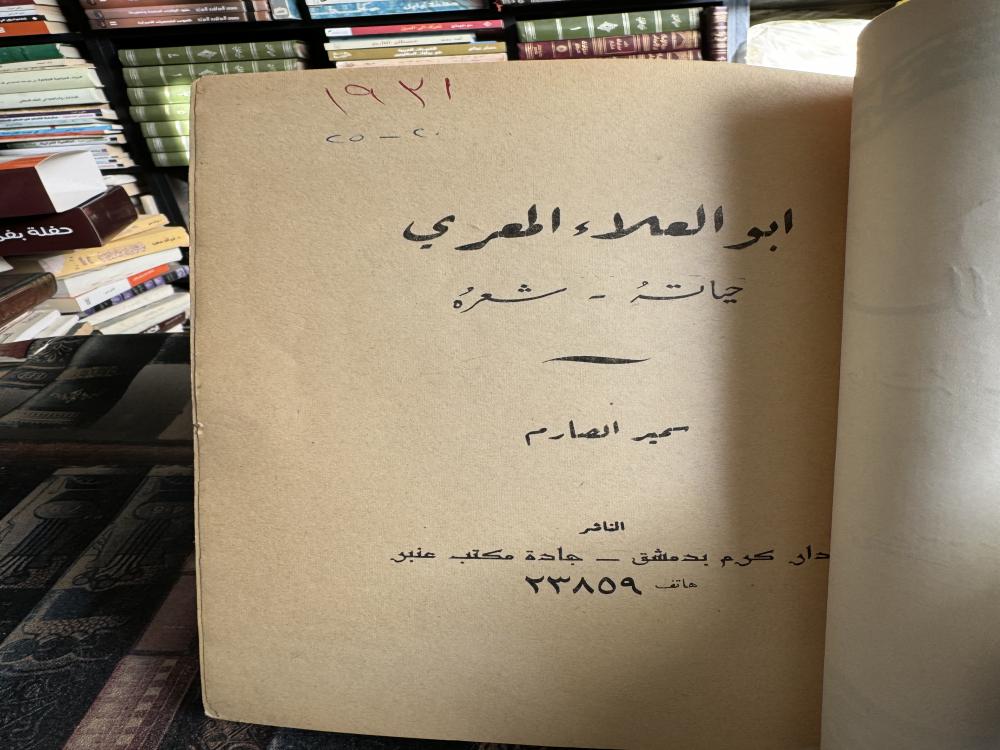 ١٩٢١
٢٠ — ٢٥
ابو العلاء المعري
حياتهُ - شعرهُ
سمير الصارم
الناشر
دار كرم بدمشق — جادة مكتب عنبر
هاتف ٢٣٨٥٩
حفلة